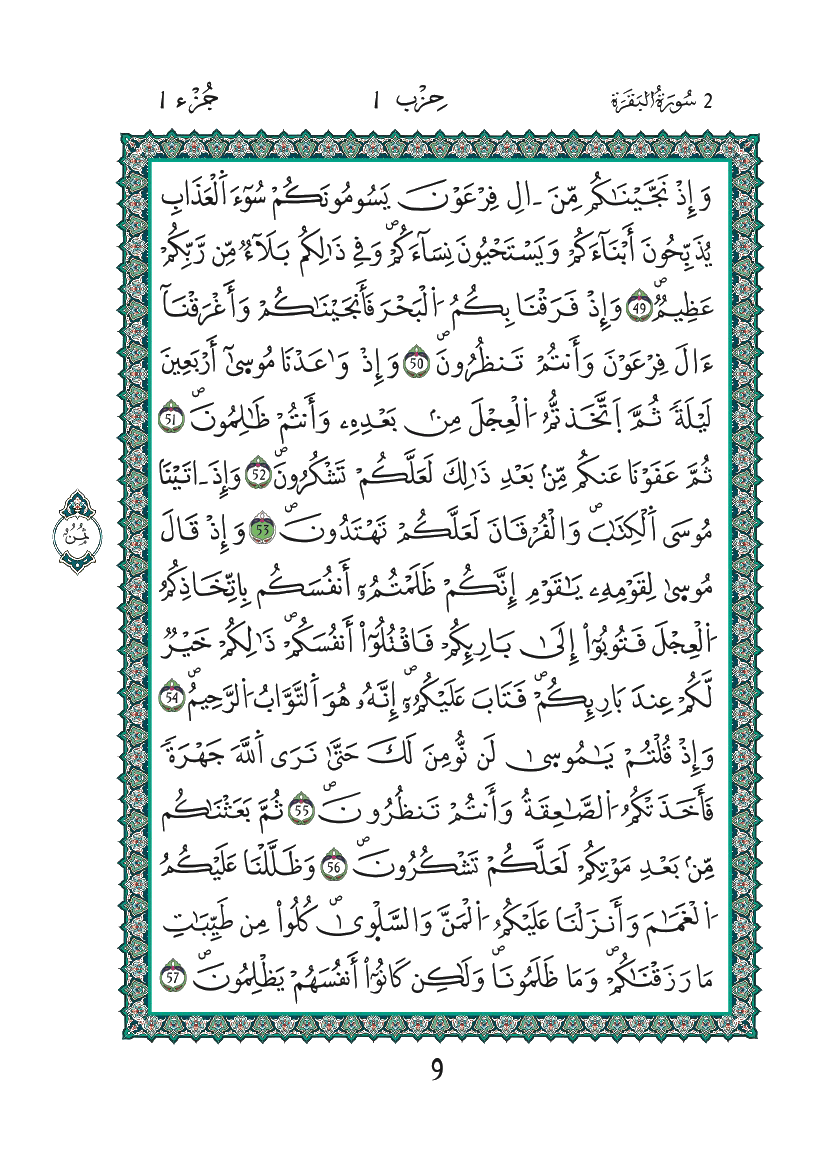 2 سُورَةُ الْبَقَرَةِ حِزْب 1 جُزْء 1
وَإِذْ نَجَّيْنَٰكُم مِّنَ ـالِ فِرْعَوْنَ يَسُومُونَكُمْ سُوٓءَ اَ۬لْعَذَابِ
يُذَبِّحُونَ أَبْنَآءَكُمْ وَيَسْتَحْيُونَ نِسَآءَكُمْۖ وَفِے ذَٰلِكُم بَلَآءٞ مِّن رَّبِّكُمْ
عَظِيمٞۖ 49 وَإِذْ فَرَقْنَا بِكُمُ اُ۬لْبَحْرَ فَأَنجَيْنَٰكُمْ وَأَغْرَقْنَآ
ءَالَ فِرْعَوْنَ وَأَنتُمْ تَنظُرُونَۖ 50 وَإِذْ وَٰعَدْنَا مُوس۪ىٰٓ أَرْبَعِينَ
لَيْلَةٗ ثُمَّ اَ۪تَّخَذتُّمُ اُ۬لْعِجْلَ مِنۢ بَعْدِهِۦ وَأَنتُمْ ظَٰلِمُونَۖ 51
ثُمَّ عَفَوْنَا عَنكُم مِّنۢ بَعْدِ ذَٰلِكَ لَعَلَّكُمْ تَشْكُرُونَۖ 52 وَإِذَ ـاتَيْنَا
مُوسَى اَ۬لْكِتَٰبَ وَالْفُرْقَانَ لَعَلَّكُمْ تَهْتَدُونَۖ 53 وَإِذْ قَالَ
مُوس۪ىٰ لِقَوْمِهِۦ يَٰقَوْمِ إِنَّكُمْ ظَلَمْتُمُۥٓ أَنفُسَكُم بِاتِّخَاذِكُمُ
اُ۬لْعِجْلَ فَتُوبُوٓا۟ إِلَىٰ بَارِئِكُمْ فَاقْتُلُوٓا۟ أَنفُسَكُمْۖ ذَٰلِكُمْ خَيْرٞ
لَّكُمْ عِندَ بَارِئِكُمْۖ فَتَابَ عَلَيْكُمُۥٓۖ إِنَّهُۥ هُوَ اَ۬لتَّوَّابُ اُ۬لرَّحِيمُۖ 54
وَإِذْ قُلْتُمْ يَٰمُوس۪ىٰ لَن نُّومِنَ لَكَ حَتَّىٰ نَرَى اَ۬للَّهَ جَهْرَةٗ
فَأَخَذَتْكُمُ اُ۬لصَّٰعِقَةُ وَأَنتُمْ تَنظُرُونَۖ 55 ثُمَّ بَعَثْنَٰكُم
مِّنۢ بَعْدِ مَوْتِكُمْ لَعَلَّكُمْ تَشْكُرُونَۖ 56 وَظَلَّلْنَا عَلَيْكُمُ
اُ۬لْغَمَٰمَ وَأَنزَلْنَا عَلَيْكُمُ اُ۬لْمَنَّ وَالسَّلْو۪ىٰۖ كُلُوا۟ مِن طَيِّبَٰتِ
مَا رَزَقْنَٰكُمْۖ وَمَا ظَلَمُونَاۖ وَلَٰكِن كَانُوٓا۟ أَنفُسَهُمْ يَظْلِمُونَۖ 57
ثُمُن
9